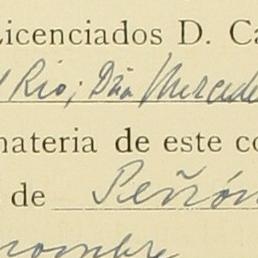 Licenciados D. Ca
Rio; Dña Mercede
materia de este co
de Peñón
nombre